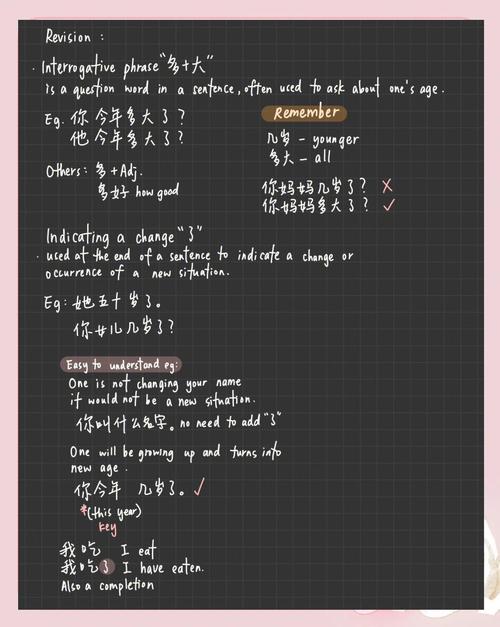 Revision :
· Interrogative phrase "多+大"
is a question word in a sentence, often used to ask about one's age.
Eg. 你今年多大了?
他今年多大了?
Others: 多+Adj.
多好 how good
Remember
几岁 - younger
多大 - all
你妈妈几岁了? ✗
你妈妈多大了? ✓
Indicating a change "了"
· used at the end of a sentence to indicate a change or
occurrence of a new situation.
Eg: 她五十岁了。
你女儿几岁了?
Easy to understand eg:
One is not changing your name
it would not be a new situation.
你叫什么名字。no need to add "了"
One will be growing up and turns into
new age.
你今年 几岁了。✓
*(this year)
key
我吃 I eat
我吃了 I have eaten.
Also a completion